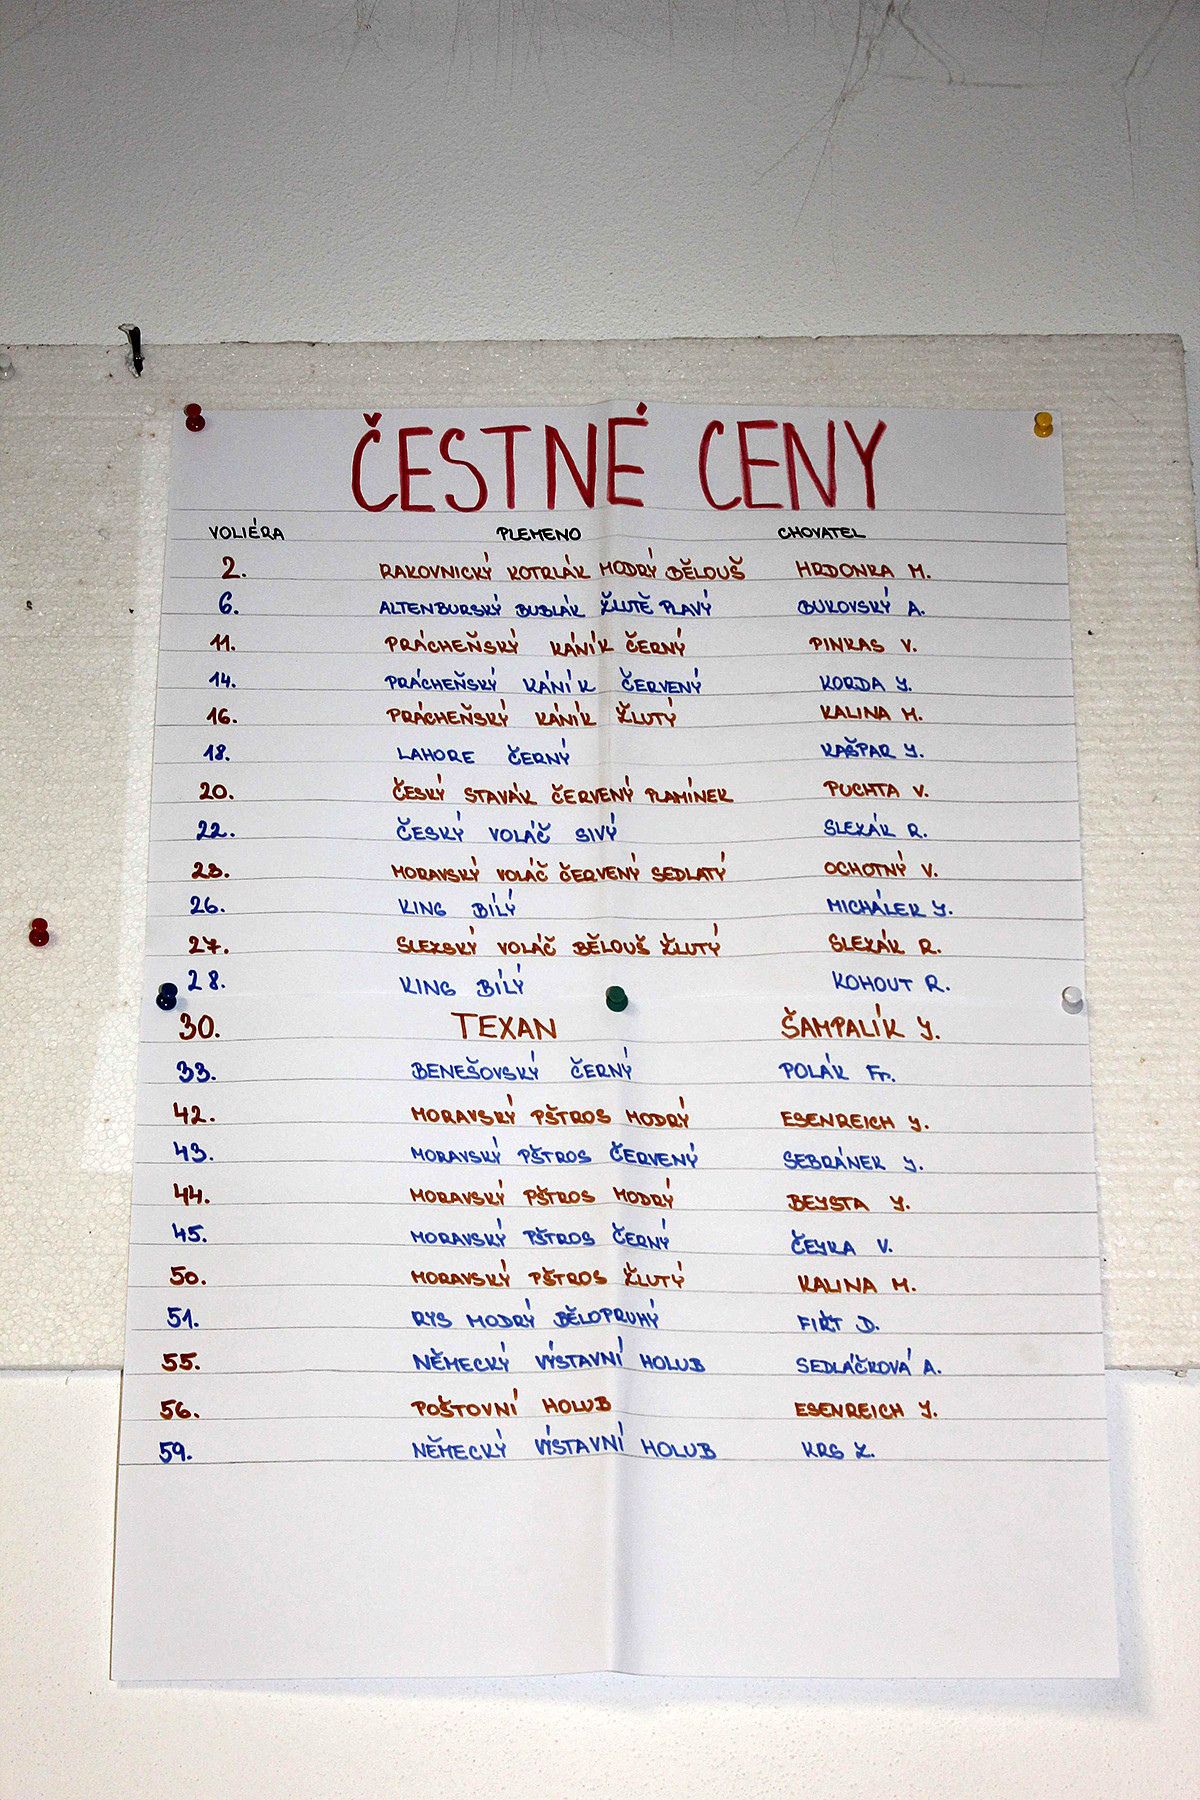 ČESTNÉ CENY
VOLIÉRA PLEMENO CHOVATEL
2. RAKOVNICKÝ KOTRLÁK MODRÝ BĚLOUŠ HRDONKA M.
6. ALTENBURSKÝ BUBLÁK ŽLUTĚ PLAVÝ BUKOVSKÝ A.
11. PRÁCHEŇSKÝ KÁNÍK ČERNÝ PINKAS V.
14. PRÁCHEŇSKÝ KÁNÍK ČERVENÝ KORDA J.
16. PRÁCHEŇSKÝ KÁNÍK ŽLUTÝ KALINA M.
18. LAHORE ČERNÝ KAŠPAR J.
20. ČESKÝ STAVÁK ČERVENÝ PLAMÍNEK PUCHTA V.
22. ČESKÝ VOLÁČ SIVÝ SLEZÁK R.
23. MORAVSKÝ VOLÁČ ČERVENÝ SEDLATÝ OCHOTNÝ V.
26. KING BÍLÝ MICHÁLEK J.
27. SLEZSKÝ VOLÁČ BĚLOUŠ ŽLUTÝ SLEZÁK R.
28. KING BÍLÝ KOHOUT R.
30. TEXAN ŠAMPALÍK J.
33. BENEŠOVSKÝ ČERNÝ POLÁK Fr.
42. MORAVSKÝ PŠTROS MODRÝ ESENREICH J.
43. MORAVSKÝ PŠTROS ČERVENÝ SEBRÁNEK J.
44. MORAVSKÝ PŠTROS MODRÝ BEJSTA J.
45. MORAVSKÝ PŠTROS ČERNÝ ČEJKA V.
50. MORAVSKÝ PŠTROS ŽLUTÝ KALINA M.
51. RYS MODRÝ BĚLOPRUHÝ FIŘT D.
55. NĚMECKÝ VÝSTAVNÍ HOLUB SEDLÁČKOVÁ A.
56. POŠTOVNÍ HOLUB ESENREICH J.
59. NĚMECKÝ VÝSTAVNÍ HOLUB KRS Z.